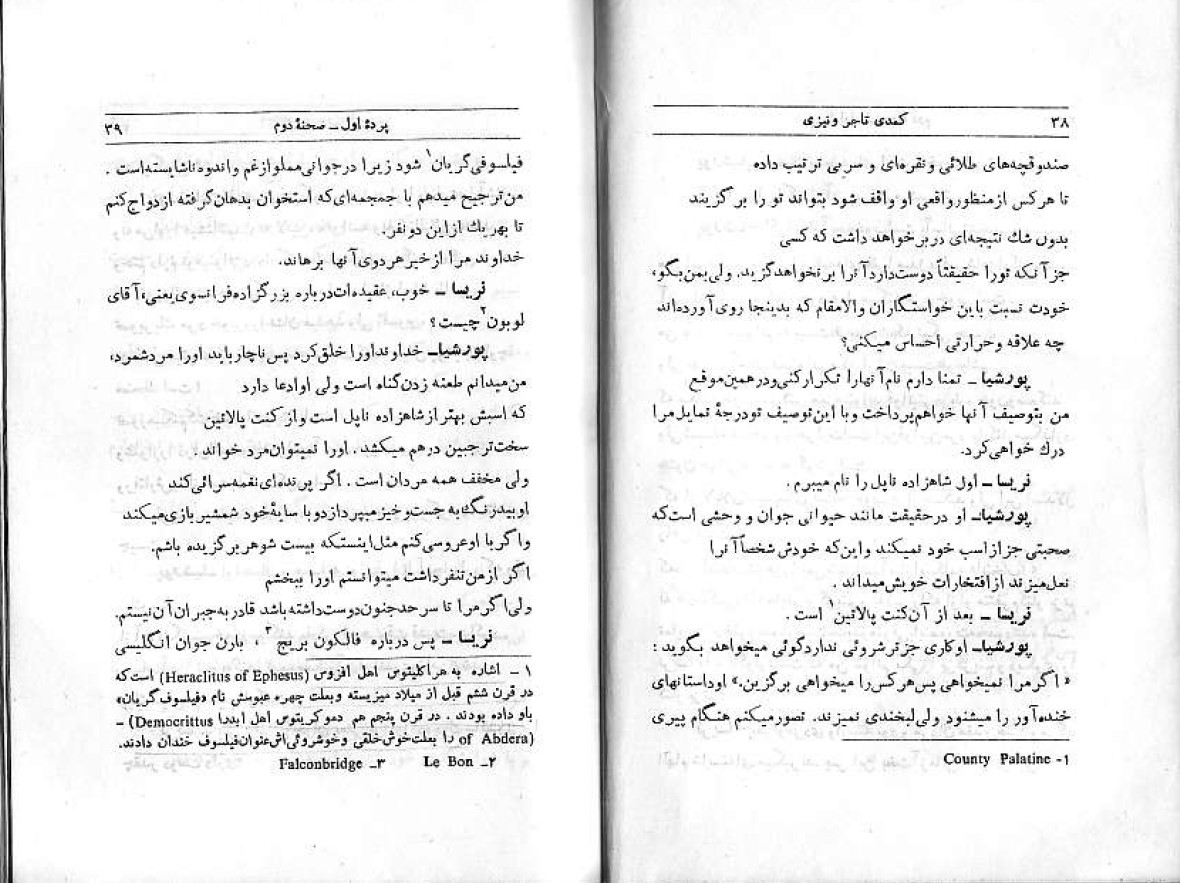 ۳۸ کمدی تاجر ونیزی
صندوقچه‌های طلائی و نقره‌ای و سربی ترتیب داده
تا هرکس ازمنظورواقعی او واقف شود بتواند تو را بر گزیند
بدون شك نتیجه‌ای دربرخواهد داشت که کسی
جزآنکه تورا حقیقتاً دوست‌داردآنرا برنخواهدگزید. ولی‌بمن‌بگو،
خودت نسبت باین خواستگاران والامقام که بدینجا روی‌آورده‌اند
چه علاقه وحرارتی احساس میکنی؟
پورشیا- تمنا دارم نام‌آنهارا تکرارکنی‌ودرهمین‌موقع
من بتوصیف آنها خواهم‌پرداخت وبا این‌توصیف تودرجهٔ تمایل‌مرا
درك خواهی‌کرد.
نریسا – اول شاهزاده ناپل را نام میبرم .
پورشیا- او درحقیقت مانند حیوانی جوان و وحشی است‌که
صحبتی جزازاسب خود نمیکند واین‌که خودش شخصاًآنرا
نعل‌میزند ازافتخارات خویش‌میداند .
نریسا – بعد از آن‌کنت پالاتین۱ است .
پورشیا- اوکاری جزترشروئی نداردگوئی میخواهد بگوید :
«اگرمرا نمیخواهی پس‌هرکس‌را میخواهی برگزین.» اوداستانهای
خنده‌آور را میشنود ولی‌لبخندی نمیزند. تصورمیکنم هنگام پیری
۱- County Palatine
پردهٔ اول – صحنهٔ دوم ۳۹
فیلسوفی‌گریان۱ شود زیرا درجوانی‌مملوازغم واندوه‌ناشایسته‌است .
من‌ترجیح میدهم با جمجمه‌ای‌که استخوان بدهان‌گرفته ازدواج‌کنم
تا بهریك ازاین دونفر.
خداوند مرا ازخیرهردوی‌آنها برهاند.
نریسا – خوب، عقیده‌ات‌درباره بزرگزاده‌فرانسوی‌یعنی،آقای
لوبون۲چیست؟
پورشیا- خداونداورا خلق‌کرد پس‌ناچارباید اورا مردشمرد،
من‌میدانم طعنه زدن‌گناه است ولی اوادعا دارد
که اسبش بهترازشاهزاده ناپل است وازکنت پالاتین
سخت‌ترجبین درهم میکشد. اورا نمیتوان‌مرد خواند .
ولی مخفف همه مردان است . اگر پرنده‌ای‌نغمه‌سرائی‌کند
اوبیدرنگ‌به جست‌وخیزمیپردازدوبا سایهٔ‌خود شمشیربازی‌میکند
واگربا اوعروسی‌کنم مثل‌اینستکه بیست شوهربرگزیده باشم.
اگر ازمن‌تنفرداشت میتوانستم اورا ببخشم
ولی‌اگرمرا تا سرحدجنون‌دوست‌داشته‌باشد قادربه‌جبران‌آن‌نیستم.
نریسا – پس درباره فالکون بریج۳ ، بارن جوان انگلیسی
۱ – اشاره به هراکلیتوس اهل افزوس (Heraclitus of Ephesus) است‌که
در قرن ششم قبل از میلاد میزیسته وبعلت چهره عبوسش نام «فیلسوف‌گریان»
باو داده بودند . در قرن پنجم هم دموکریتوس اهل ابدرا (Democrittus –
of Abdera) را بعلت‌خوش‌خلقی وخوشروئی‌اش‌عنوان‌فیلسوف خندان دادند.
۲– Le Bon ۳– Falconbridge